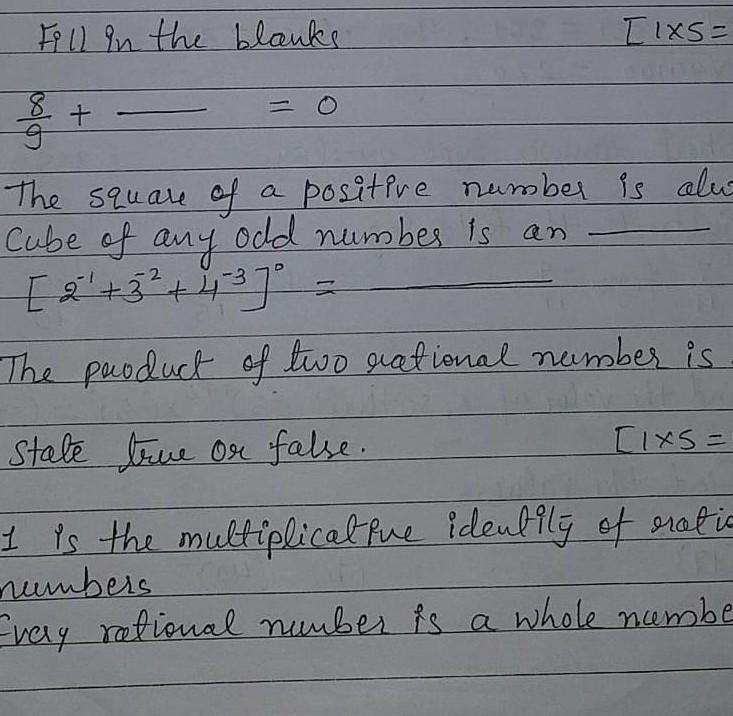 Fill in the blanks [1×5=
8/9 + —— = 0
The square of a positive number is alw
Cube of any odd number is an ——
[2⁻¹+3⁻²+4⁻³]⁰ = ——
The product of two rational number is
State true or false. [1×5=
1 is the multiplicative identity of ratio
numbers
Every rational number is a whole numbe